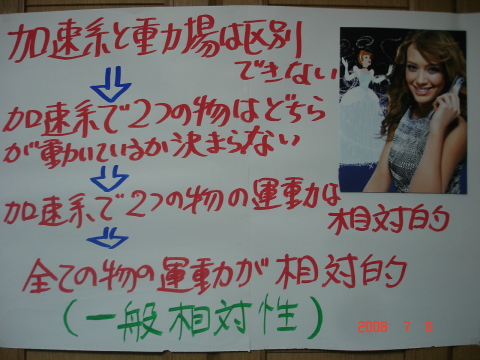 加速系と重力場は区別
できない
加速系で2つの物はどちら
が動いているか決まらない
加速系で2つの物の運動は
相対的
全ての物の運動が相対的
(一般相対性)